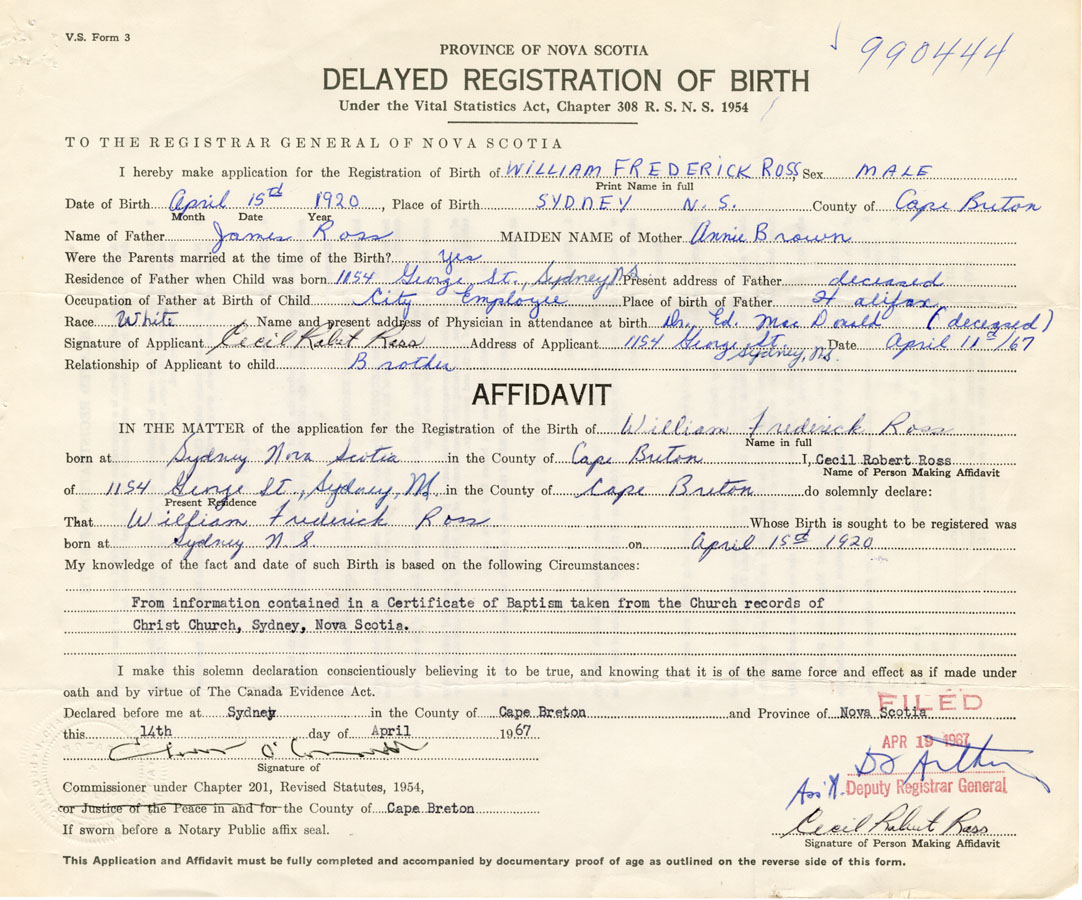 V.S. Form 3
990444
PROVINCE OF NOVA SCOTIA
DELAYED REGISTRATION OF BIRTH
Under the Vital Statistics Act, Chapter 308 R. S. N. S. 1954
TO THE REGISTRAR GENERAL OF NOVA SCOTIA
I hereby make application for the Registration of Birth of WILLIAM FREDERICK ROSS, Sex MALE
Print Name in full
Date of Birth April 15th 1920, Place of Birth SYDNEY N. S. County of Cape Breton
Month Date Year
Name of Father James Ross MAIDEN NAME of Mother Annie Brown
Were the Parents married at the time of the Birth? Yes
Residence of Father when Child was born 1154 George St., Sydney, N.S. Present address of Father deceased
Occupation of Father at Birth of Child City Employee Place of birth of Father Halifax
Race White Name and present address of Physician in attendance at birth Dr. Ed. Mac Donald (deceased)
Signature of Applicant Cecil Robert Ross Address of Applicant 1154 George St. Sydney, N.S. Date April 11th/67
Relationship of Applicant to child Brother
AFFIDAVIT
IN THE MATTER of the application for the Registration of the Birth of William Frederick Ross
Name in full
born at Sydney Nova Scotia in the County of Cape Breton I, Cecil Robert Ross
Name of Person Making Affidavit
of 1154 George St., Sydney, N.S. in the County of Cape Breton do solemnly declare:
Present Residence
That William Frederick Ross Whose Birth is sought to be registered was
born at Sydney N. S. on April 15th 1920
My knowledge of the fact and date of such Birth is based on the following Circumstances:
From information contained in a Certificate of Baptism taken from the Church records of
Christ Church, Sydney, Nova Scotia.
I make this solemn declaration conscientiously believing it to be true, and knowing that it is of the same force and effect as if made under
oath and by virtue of The Canada Evidence Act.
FILED
Declared before me at Sydney in the County of Cape Breton and Province of Nova Scotia
this 14th day of April 1967
APR 19 1967
Signature of
Deputy Registrar General
Commissioner under Chapter 201, Revised Statutes, 1954,
or Justice of the Peace in and for the County of Cape Breton
Cecil Robert Ross
If sworn before a Notary Public affix seal.
Signature of Person Making Affidavit
This Application and Affidavit must be fully completed and accompanied by documentary proof of age as outlined on the reverse side of this form.